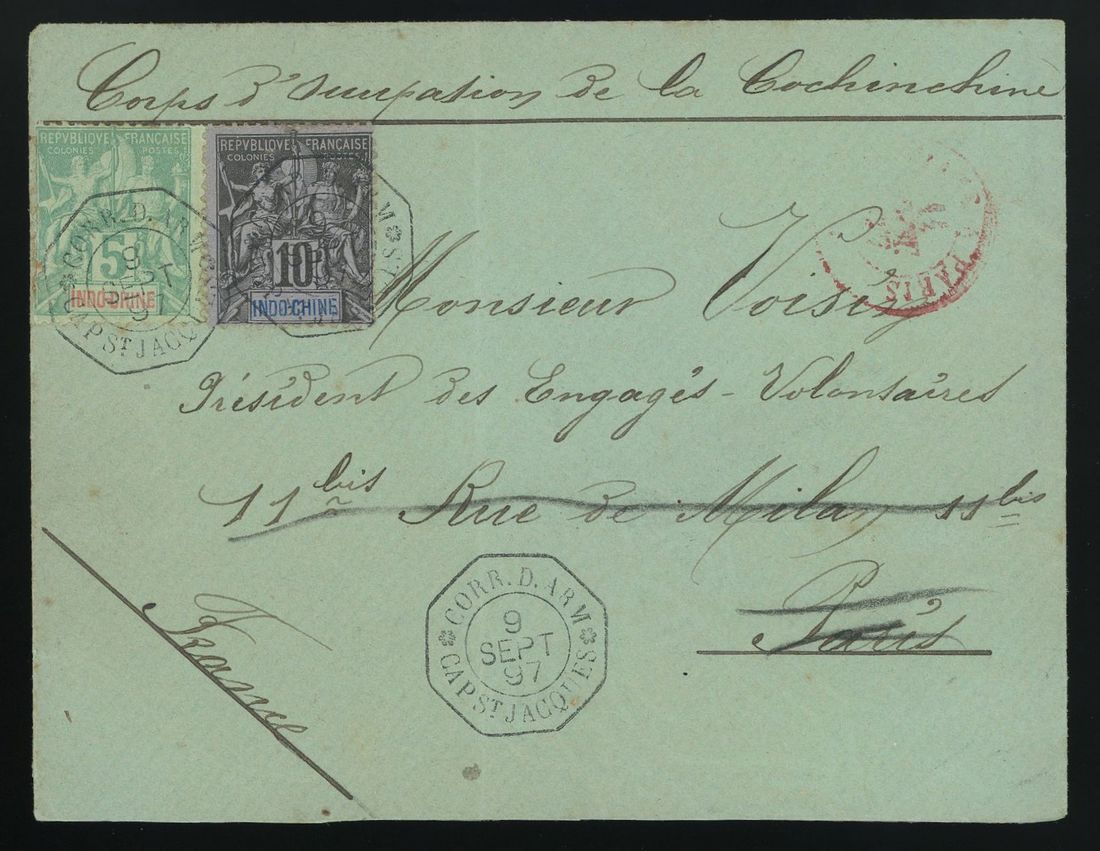 Corps d'occupation de la Cochinchine
REPVBLIQUE FRANÇAISE
COLONIES POSTES
5
INDO-CHINE
REPVBLIQUE FRANÇAISE
COLONIES POSTES
10
INDO-CHINE
CORR. D. ARM
9
SEPT
CAP ST JACQUES
PARIS
Monsieur Voisin
Président des Engagés-Volontaires
11 bis Rue de Milan 11 bis
Paris
France
CORR. D. ARM
9
SEPT
97
CAP ST JACQUES